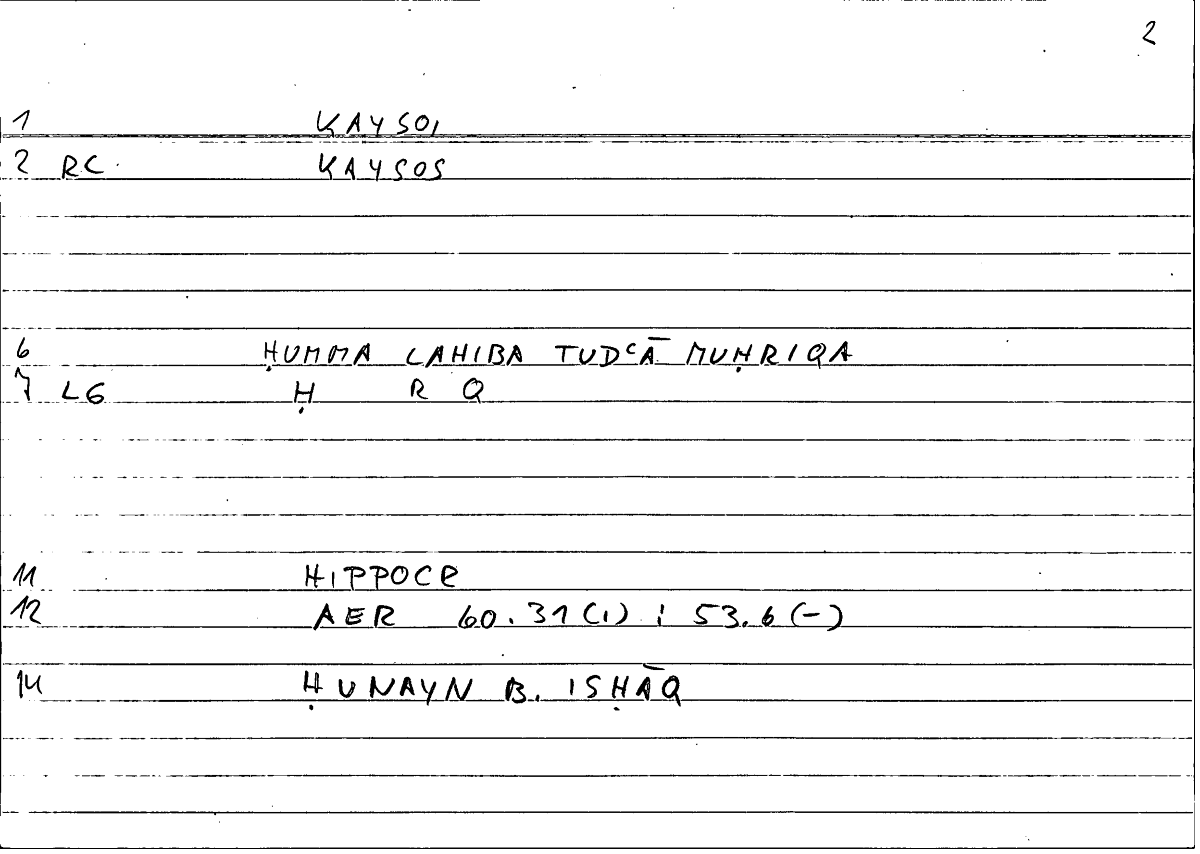 2
1 KAYSOI
2 RC KAYSOS
6 ḤUMMA LAHIBA TUDᶜĀ MUḤRIQA
7 LG Ḥ R Q
11 HIPPOCR
12 AER 60.31(1) ; 53.6(-)
14 ḤUNAYN B. ISḤĀQ